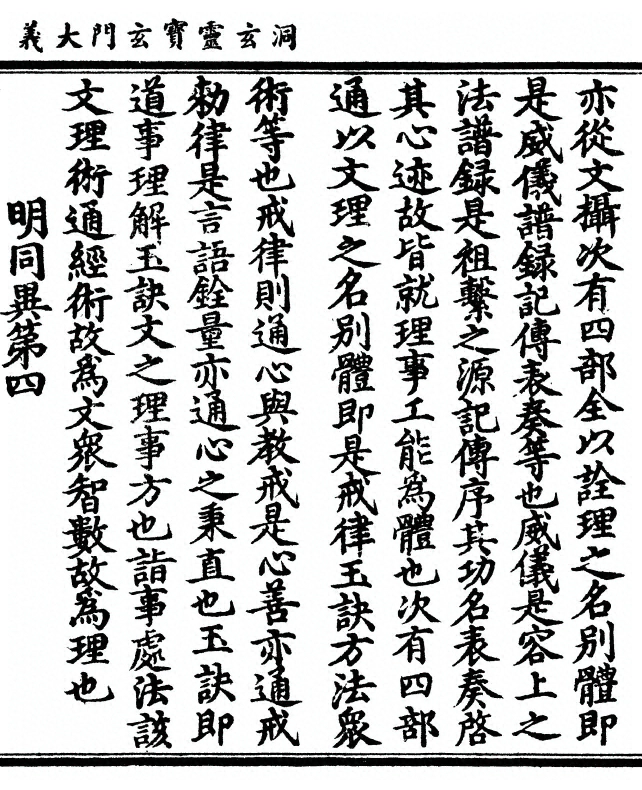 洞玄靈寶玄門大義
亦從文攝次有四部全以詮理之名別體即
是威儀譜録記傳表奏等也威儀是容上之
法譜録是祖繫之源記傳序其功名表奏啓
其心迹故皆就理事工能為體也次有四部
通以文理之名別體即是戒律玉訣方法衆
術等也戒律則通心與教戒是心善亦通戒
勑律是言語銓量亦通心之秉直也玉訣即
道事理解玉訣文之理事方也詣事處法該
文理術通經術故為文衆智數故為理也
明同異第四